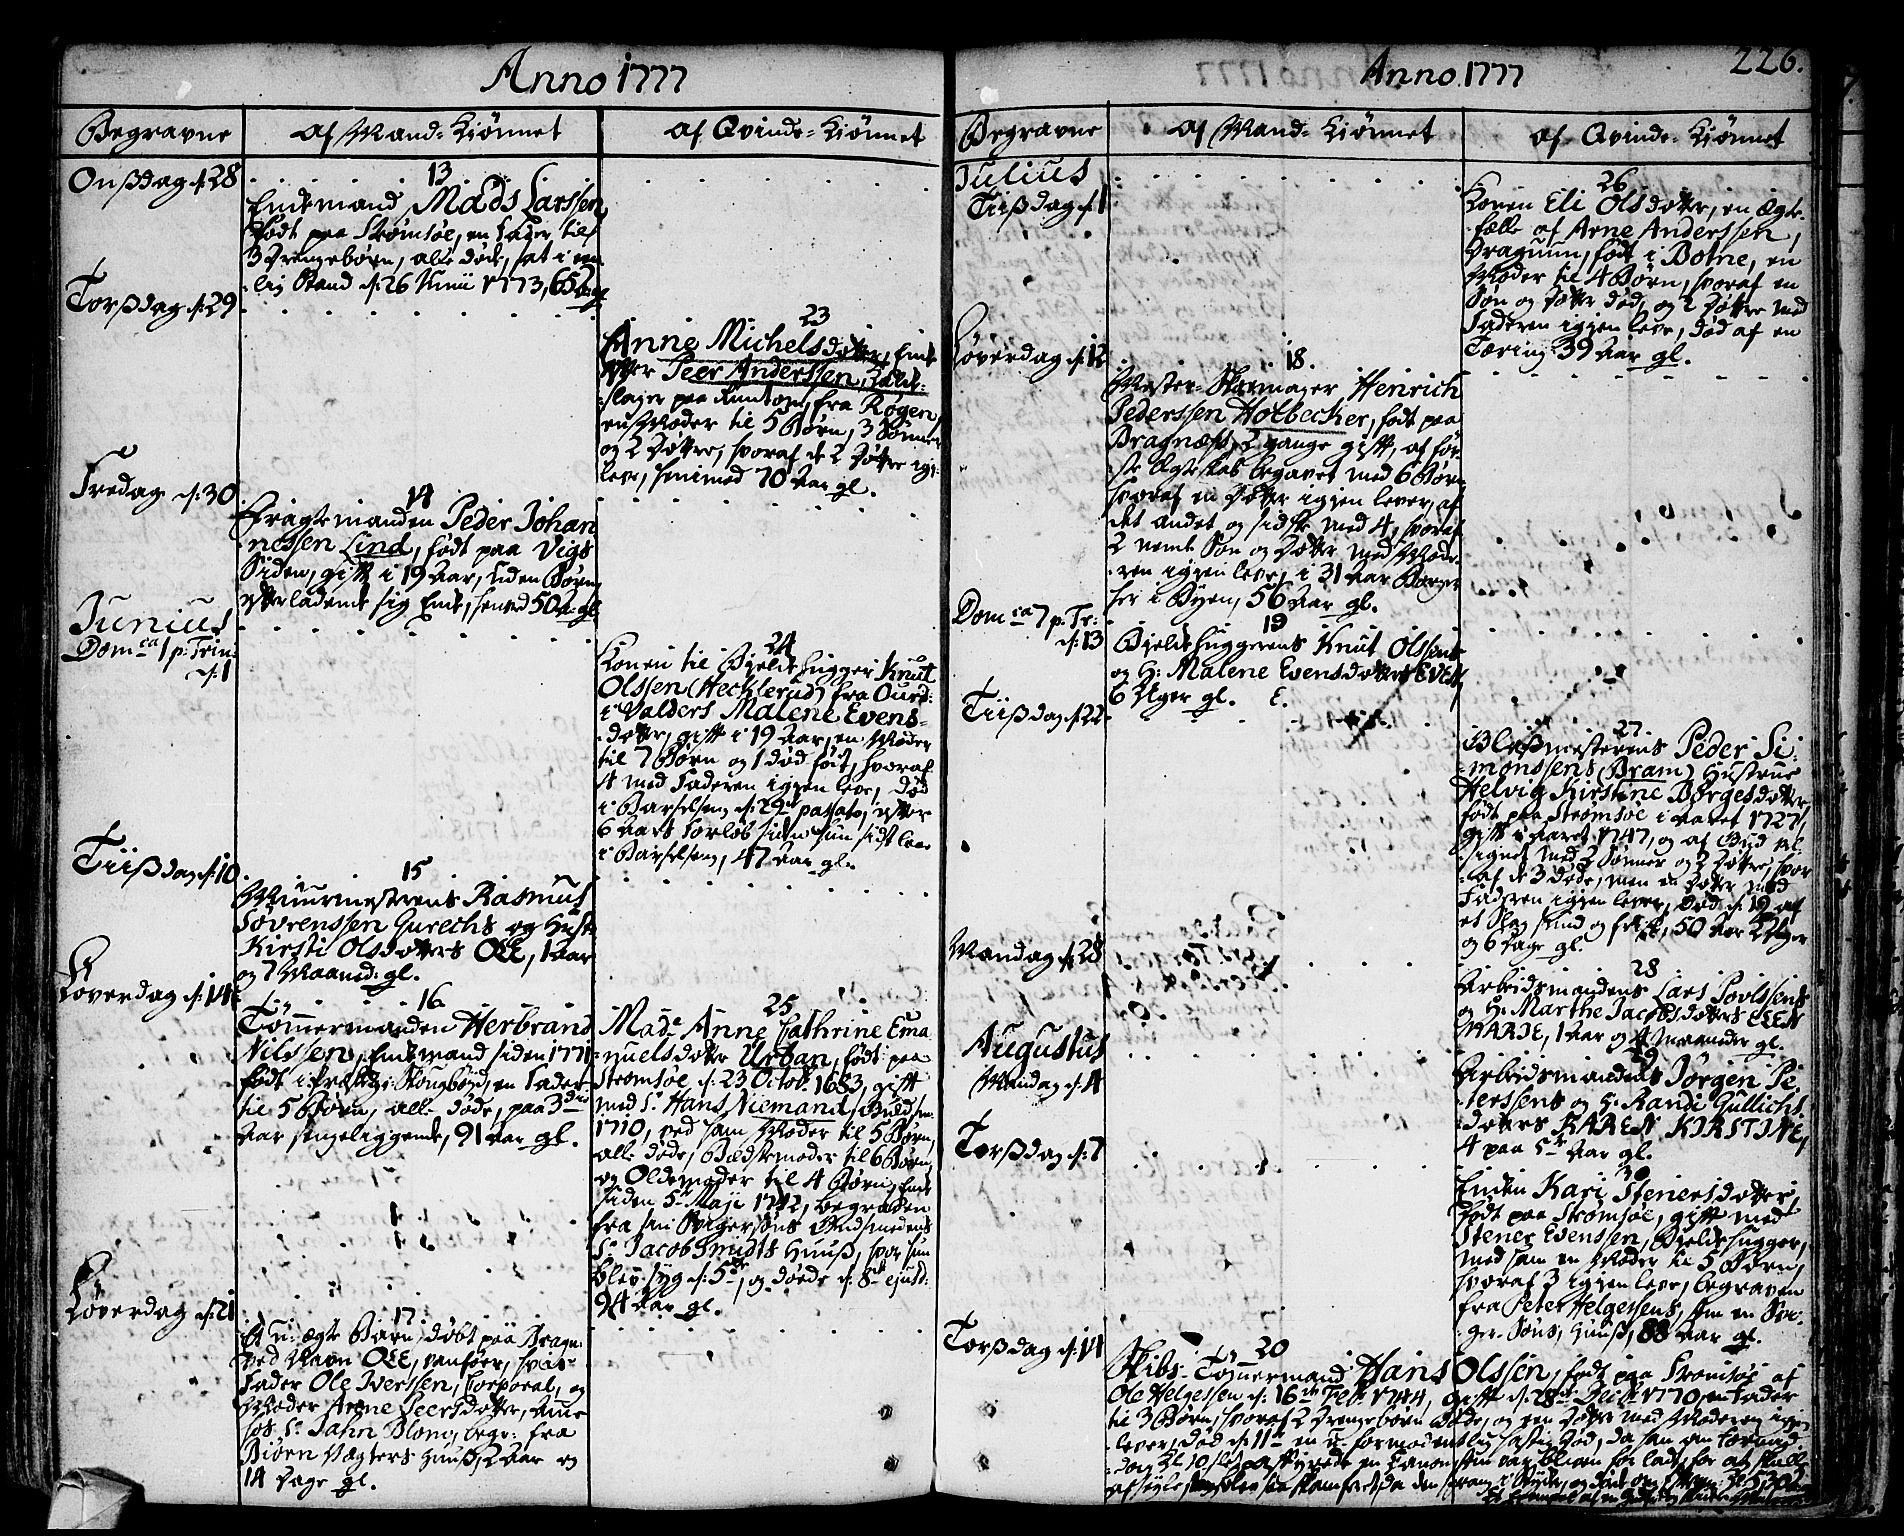 Anno 1777
Begravne
af Mand-Kiønnet
af Qvinde-Kiønnet
Onsdag d: 28
13
Enkemand Mads Larssen
født paa Strømsøe, en Fader til
3 Drengebørn, alle døde, sat i en
lig Stand d: 26 Junii 1773, 63 Aar gl
Torsdag d: 29
23
Anne Michelsdotter, Enke
efter Peer Anderssen,
slager paa Tangen, fra Røgen,
en Moder til 5 Børn, 3 Sønner
og 2 Døttre, hvoraf de 2 Døttre igj:
leve, henimod 70 Aar gl.
Fredag d: 30
14
Fragtemanden Peder Johan
nessen Lind, født paa Vigs
Siden, gift i 19 Aar, uden Børn,
efterladende sig Enke, henved 50 Aar gl
Junius
Dom ca 1 p: Trin:
d: 1
24
Konen til Bjelkehugger Knut
Olssen (Hecklerud) fra Ourd:
i Valders Malene Evens-
dotter, gift i 19 Aar, en Moder
til 7 Børn og 1 død født, hvoraf
4 med Faderen igjen leve, død
i Barselseng d: 29de passato, efter
6 Aars Forløb siden hun sidst laae
i Barselseng, 47 Aar gl.
Tiisdag d: 10
15
Muurmesterens Rasmus
Søvrenssen Gurechs og Hust:
Kirsti Olsdotters OLE, 1 Aar
og 7 Maaned: gl.
Løverdag d: 14
16
Tømmermanden Herbrand
Nilssen, Enkemand siden 1771
født i Skougbøjd, en Fader
til 5 Børn, alle døde, paa 3die
Aar sengeliggende, 91 Aar gl.
25
Made Anne Cathrine Ema
nuelsdotter Urban, født paa
Strømsøe d: 23 Octob: 1683, gift
med Sr Hans Niemand,
1710, ved ham Moder til 5 Børn,
alle døde, Bedstemoder til 6 Børn,
og Oldemoder til 4 Børn, Enke
siden 5te Maji 1742, begraven
fra sin Svigersøns Guldsmedens
Sr Jacob Smidts Huus, hvor hun
blev syg d: 5te, og døde d: 8de ejusd:
94 Aar gl.
Løverdag d: 21
17
Et u-ægte Barn, døbt paa Bragn:
ved Navn OLE, vanføer, hvis
Fader Ole Iverssen, Corporal, og
Moder Anne Peersdotter, Amme
hos Sr Jahn Blom, begr: fra
Biørn Vægters Huus, 2 Aar og
14 Dage gl.
Anno 1777
226.
Begravne
af Mand-Kiønnet
af Qvinde-Kiønnet
Julius
Tiisdag d: 1
26
Konen Eli Olsdotter, en Ægte-
fælle af Arne Anderssen,
Draguun, født i Botne, en
Moder til 4 Børn, hvoraf en
Søn og Dotter død, og 2 Døttre med
Faderen igjen leve, død af en
Tæring 39 Aar gl.
Løverdag d: 12
18.
Mester-Skoemager Henrich
Pederssen Holbecker, født paa
Bragnæss, 2 gange gift, af før-
ste Ægteskab begavet med 6 Børn
hvoraf en Dotter igjen lever, af
det andet og sidste med 4, hvoraf
2 nemlig Søn og Dotter med Mode-
ren igjen leve, i 31 Aar Borger
her i Byen, 56 Aar gl.
Dom ca 7 p: Tr:
d: 13
19
Bjelkehuggerens Knut Olssens
og H: Malene Evensdotters EVEN,
6 Uger gl. E.
Tiisdag d: 22
27
Peder Si-
monssens (Bram) Hustrue
Helvig Kirstine Børgesdotter,
født paa Strømsøe i Aaret 1727,
gift i Aaret 1747, og af Gud vel-
signet med 2 Sønner og 2 Døttre, hvor
af de 3 døde, men en Dotter med
Faderen igjen lever, død d: 19 af
et Slag sund og frisk, 50 Aar 2 Uger
og 6 Dage gl.
Mandag d: 28
28
Arbeidsmandens Lars Povlssens
og H: Marthe Jacobsdotters ELEN
MARIE, 1 Aar og 4 Maaneder gl.
Augustus
Mandag d: 4
29
Arbeidsmandens Jørgen Pe-
terssens og H: Randi Gullichs-
dotters KAREN KIRSTINE,
4 paa 5te Aar gl.
Torsdag d: 7
30
Enken Kari Stenersdotter,
født paa Strømsøe, gift med
Stener Evenssen, Bjelkehugger,
med ham en Moder til 5 Børn,
hvoraf 3 igjen leve, begraven
fra Peter Helgessens, som en Svi-
ger-Søns, Huus, 88 Aar gl.
Torsdag d: 14
20
Skibs-Tømmermand Hans Olssen, født paa Strømsøe af
Ole Helgessen d: 16de Febr: 1744, gift d: 28de Dec: 1770, en Fader
til 3 Børn, hvoraf 2 Drengebørn døde, og een Dotter med Moderen igjen
lever, død d: 11te en u-formodentlig hastig Død, da han om Formid-